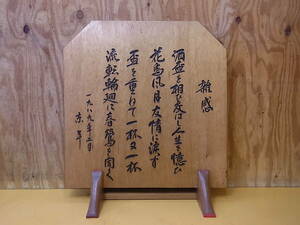 雑感
酒盃を相い交はし人生を憶ひ
花鳥風月友情に涙す
盃を重ねて一杯又一杯
流転輪廻に春鶯を聞く
一九八九年三月